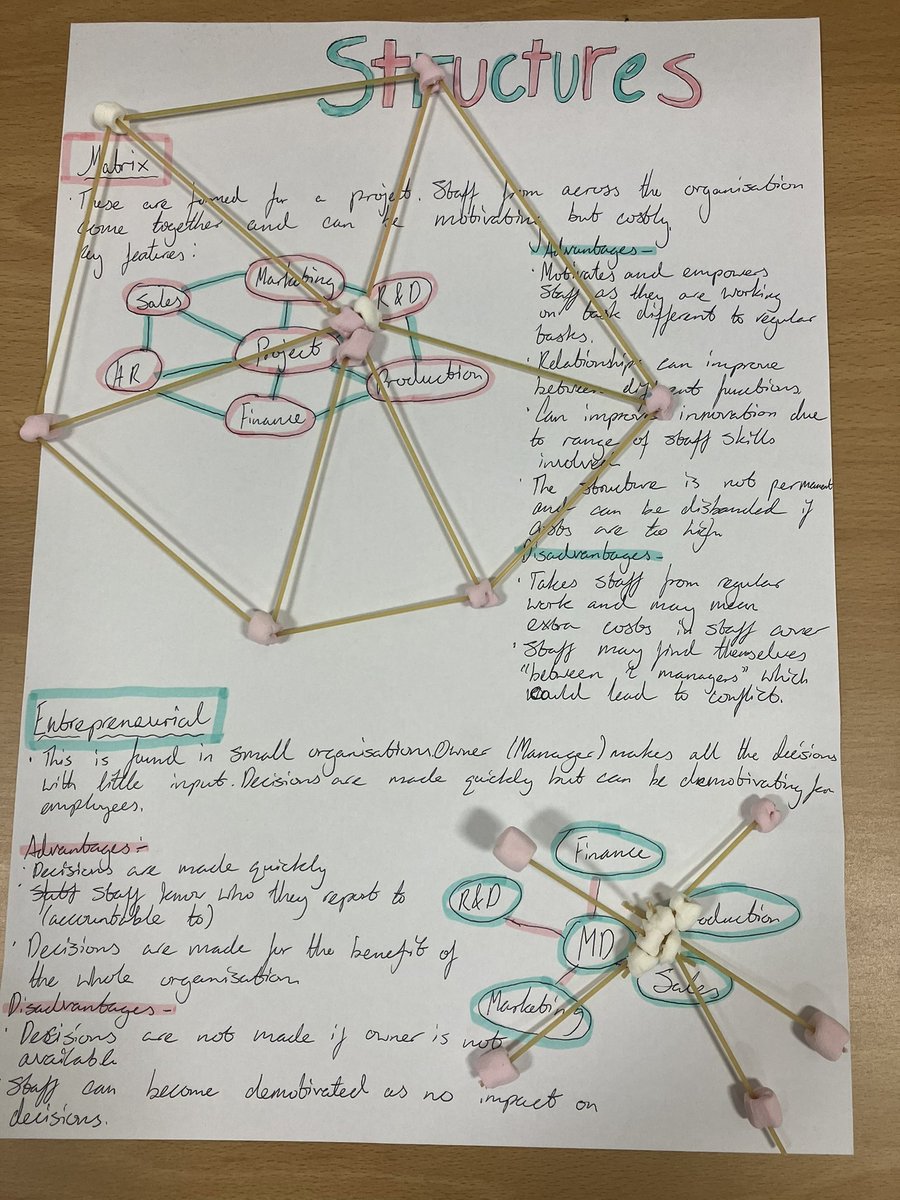 Structures
Matrix
· These are formed for a project. Staff from across the organisation
come together and can be motivating but costly.
Key features:
Marketing
Sales
R&D
Project
HR
Production
Finance
Advantages-
· Motivates and empowers
Staff as they are working
on task different to regular
tasks.
· Relationships can improve
between different functions
· Can improve innovation due
to range of staff skills
involved
· The structure is not permanent
and can be disbanded if
costs are too high
Disadvantages-
· Takes staff from regular
work and may mean
extra costs in staff cover
· Staff may find themselves
"between 2 managers" which
could lead to conflict.
Entrepreneurial
· This is found in small organisations. Owner (Manager) makes all the decisions
with little input. Decisions are made quickly but can be demotivating for
employees.
Advantages:-
· Decisions are made quickly
· Staff know who they report to
(accountable to)
· Decisions are made for the benefit of
the whole organisation
Disadvantages-
· Decisions are not made if owner is not
available
Staff can become demotivated as no impact on
decisions.
Finance
R&D
oduction
MD
Sales
Marketing